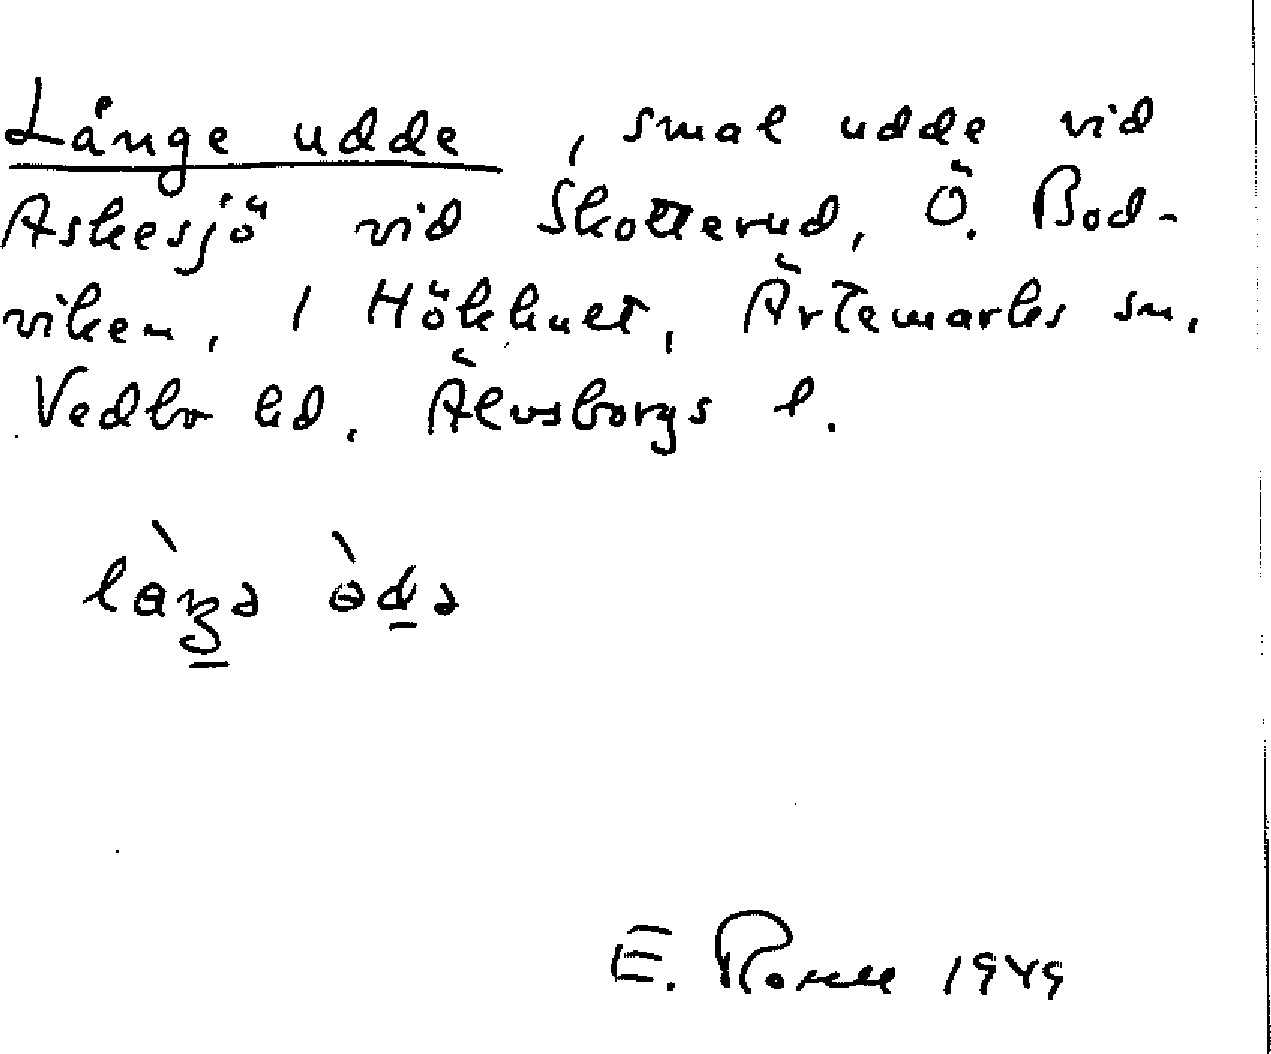 Långe udde, smal udde vid
Askesjö vid Skotterud, Ö. Bod-
viken, 1 Hökhult, Ärtemarks sn,
Vedbo hd. Älvsborgs l.
E. 1949